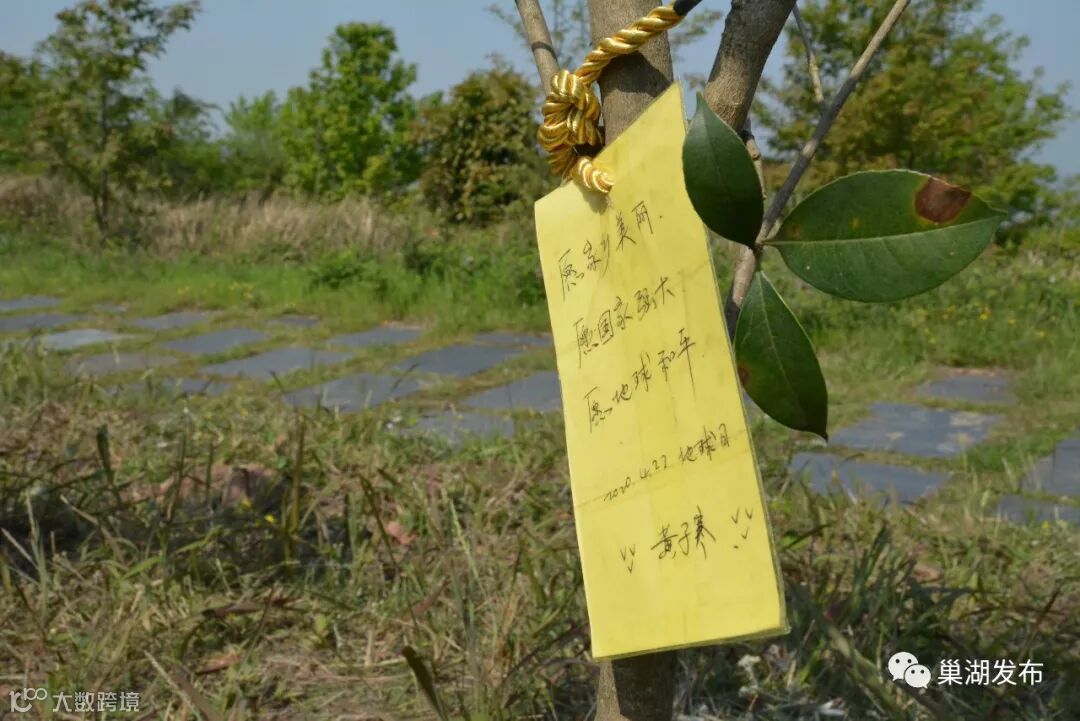 愿家乡美丽.
愿国家强大
愿地球和平.
2020.4.22 地球日
黄子寒
巢湖发布
大数跨境